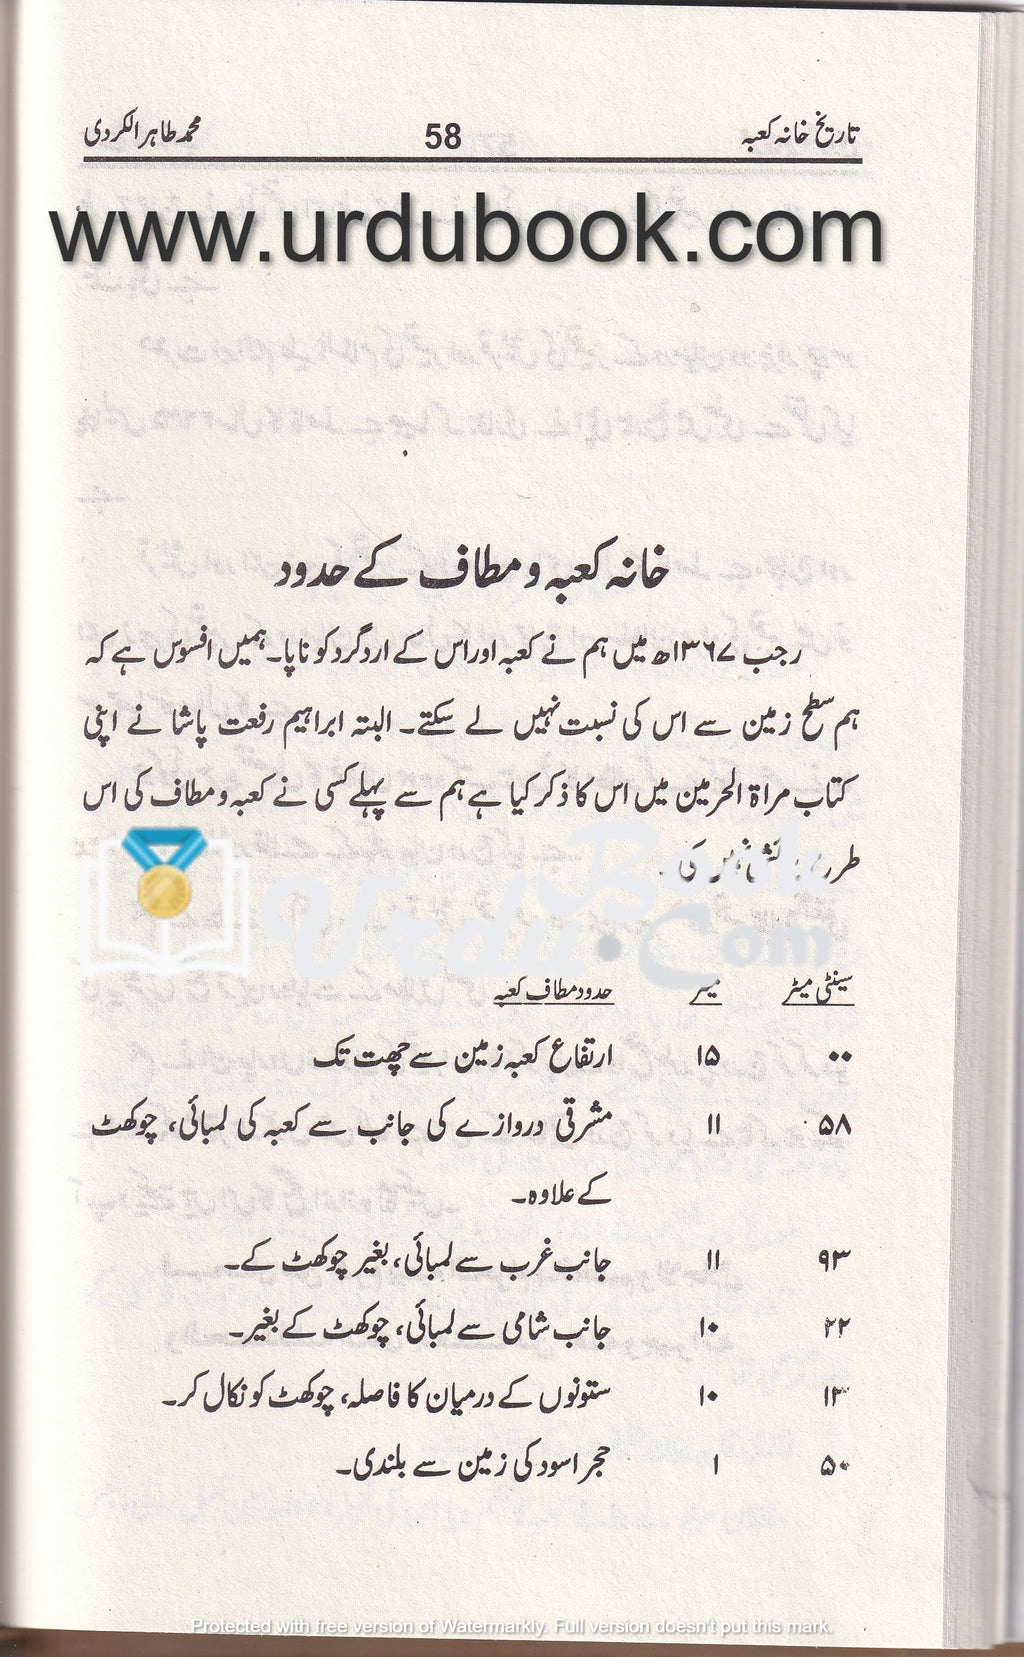 تاریخ خانہ کعبہ 58 محمد طاہر الکردی
www.urdubook.com
خانہ کعبہ و مطاف کے حدود
رجب ۱۳۶۷ھ میں ہم نے کعبہ اور اس کے ارد گرد کو ناپا۔ ہمیں افسوس ہے کہ
ہم سطح زمین سے اس کی نسبت نہیں لے سکتے۔ البتہ ابراہیم رفعت پاشا نے اپنی
کتاب مراۃ الحرمین میں اس کا ذکر کیا ہے ہم سے پہلے کسی نے کعبہ و مطاف کی اس
کی
UrduBook.Com
سینٹی میٹر میٹر حدود مطاف کعبہ
۰۰ ۱۵ ارتفاع کعبہ زمین سے چھت تک
۵۸ ۱۱ مشرقی دروازے کی جانب سے کعبہ کی لمبائی، چوکھٹ
کے علاوہ۔
۹۳ ۱۱ جانب غرب سے لمبائی، بغیر چوکھٹ کے۔
۲۲ ۱۰ جانب شامی سے لمبائی، چوکھٹ کے بغیر۔
۱۳ ۱۰ ستونوں کے درمیان کا فاصلہ، چوکھٹ کو نکال کر۔
۵۰ ۱ حجر اسود کی زمین سے بلندی۔
Protected with free version of Watermarkly. Full version doesn't put this mark.